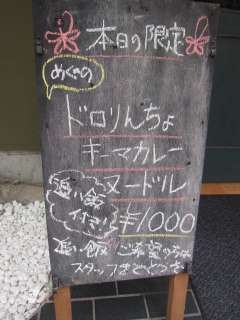 本日の限定
めぐみの
ドロりんちょ
キーマカレー
ヌードル
追い飯
付き!
¥1000
追い飯 ご希望の方は
スタッフまでどうぞ